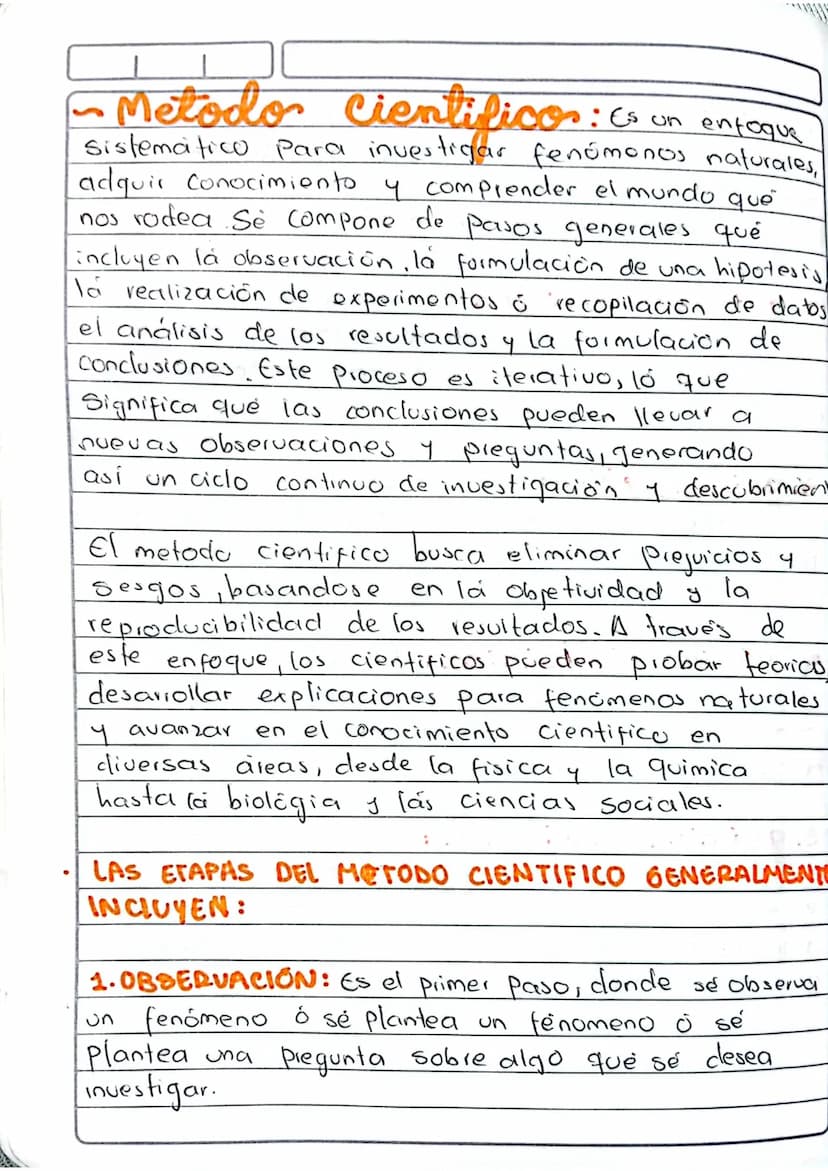 ~ Metodo cientifico: Es un enfoque
sistemático para investigar fenómenos naturales,
adquir conocimiento y comprender el mundo qué
nos rodea. Sé compone de pasos generales qué
incluyen lá observación, lá formulación de una hipotesis
lá realización de experimentos ó recopilación de datos
el análisis de los resultados y la formulación de
conclusiones. Este proceso es iterativo, ló que
significa qué las conclusiones pueden llevar a
nuevas observaciones y preguntas, generando
así un ciclo continuo de investigación y descubrimien
El metodo cientifico busca eliminar prejuicios y
sesgos, basandose en lá objetividad y la
reproducibilidad de los resultados. A través de
este enfoque, los cientificos pueden probar teorias
desarrollar explicaciones para fenómenos naturales
y avanzar en el conocimiento cientifico en
diversas áreas, desde la fisica y la quimica
hasta lá biológia y lás ciencias sociales.
· LAS ETAPAS DEL METODO CIENTIFICO GENERALMENT
INCLUYEN:
1. OBSERVACIÓN: Es el primer paso, donde sé observa
un fenómeno ó sé plantea un fénomeno ó sé
plantea una pregunta sobre algo qué sé desea
investigar.